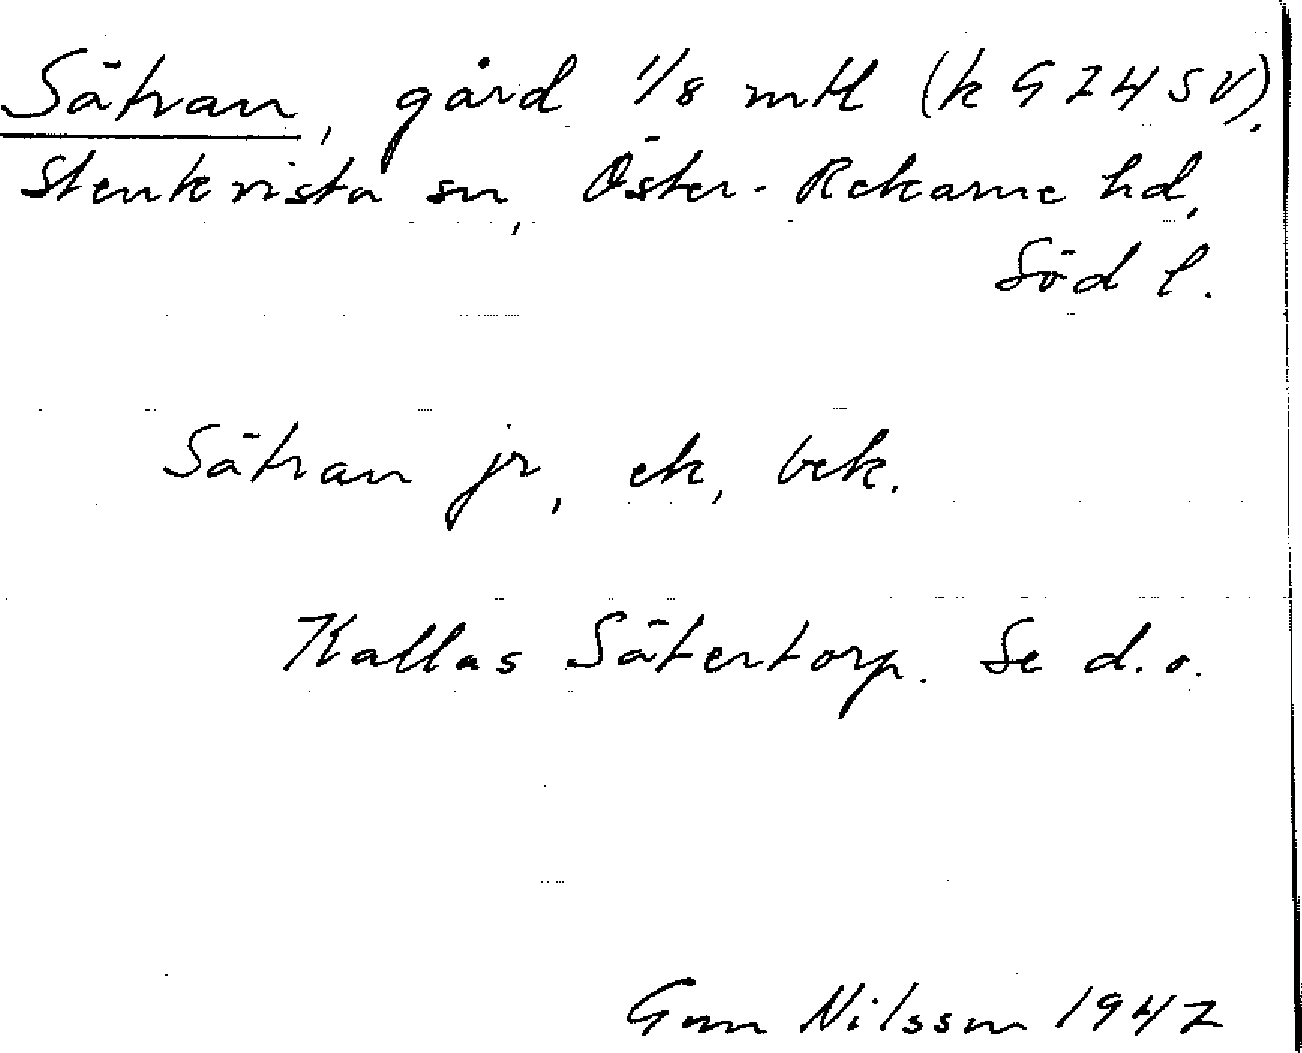 Sätran, gård 1/8 mtl (k G Z 4 SV).
Stenkvista sn, Öster-Rekarne hd,
Söd l.
Sätran jr, ek, bek.
Kallas Sätertorp. Se d.o.
Gun Nilsson 1947